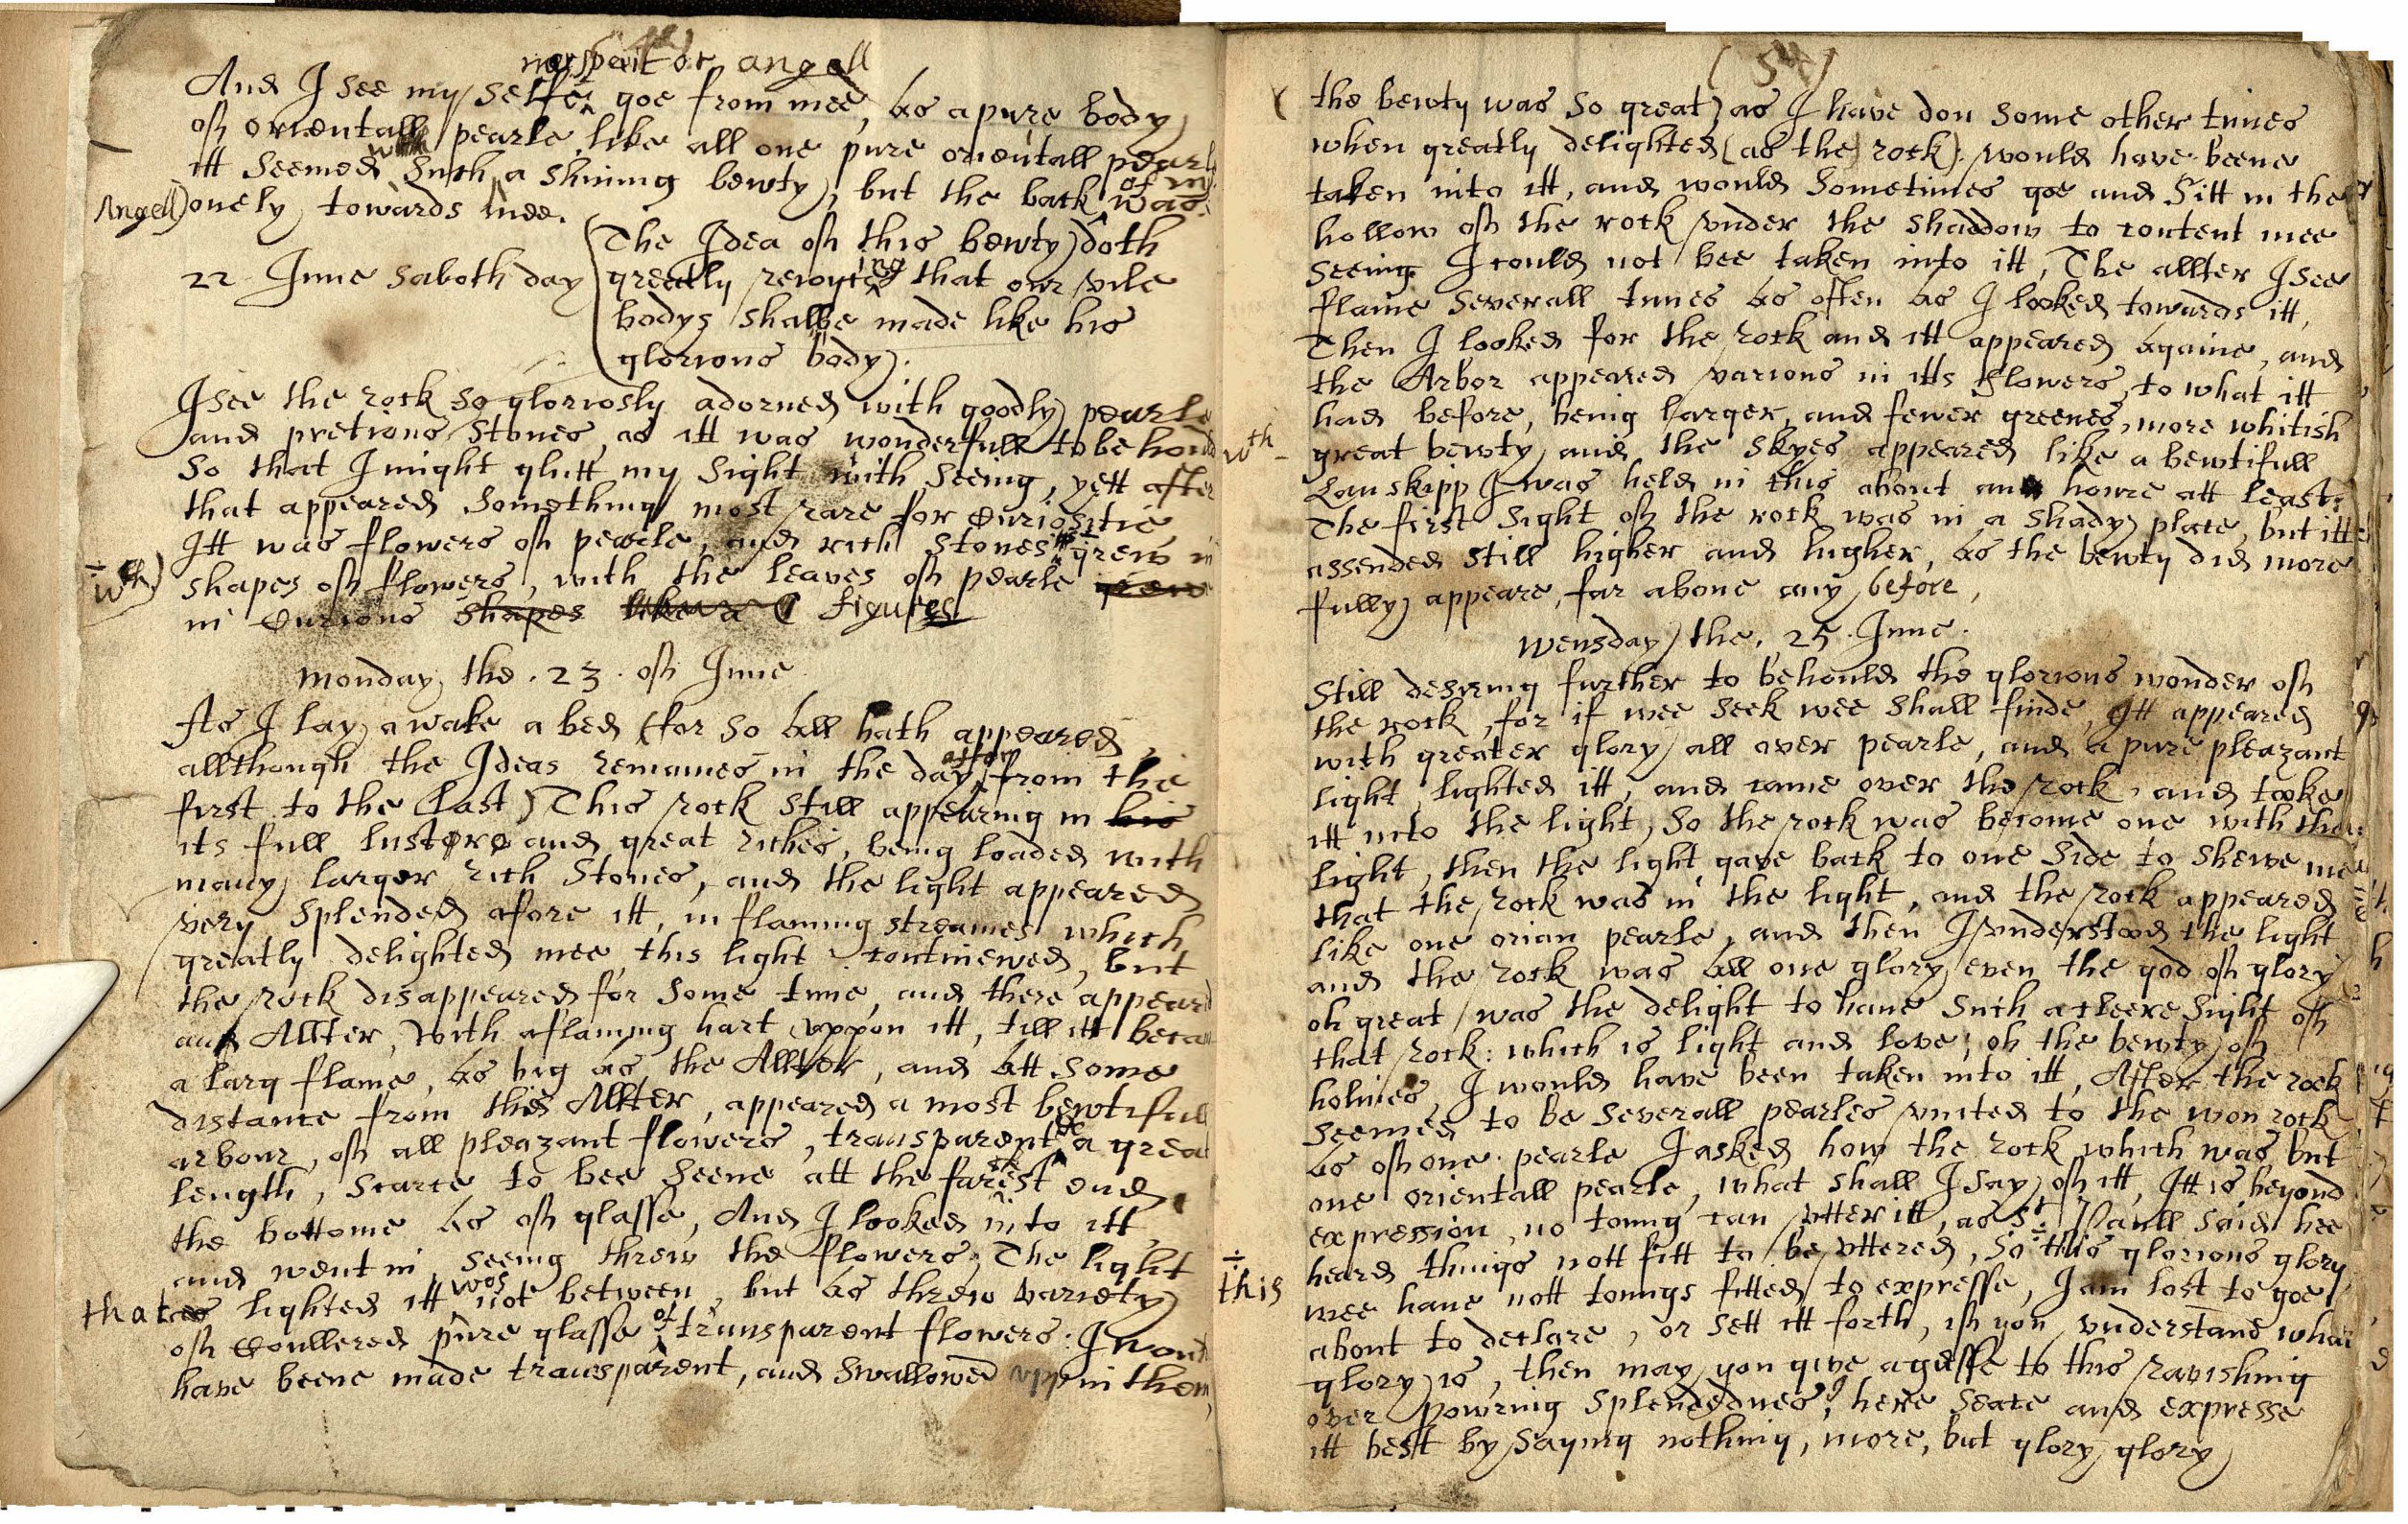 (4)
my spirit or angell
And I see my selfe goe from mee, as a pure body
off orientall pearle like all one pure orientall pearle
itt seemed such a shining bewty, but the back was
Angell) onely towards mee.
22 June saboth day (The Idea off this bewty doth
greatly rejoyceing that our vile
bodys shalbe made like his
glorious body.
I see the rock so gloriosly adorned with goodly pearle
and pretious stones, as itt was wonderfull to behould
so that I might glutt my sight with seeing, yett after
that appeared something most rare for curiositie
Itt was flowers off pearle, and rich stones grew in
wch) shapes off flowers, with the leaves off pearle grew
in curious shapes like a figures
monday the . 23 . off June
As I lay awake abed (for so all hath appeared
allthough the Ideas remaines in the day after from the
first to the last) This rock still appearing in his
its full lustere and great riches, being loaded with
many larger rich stones, and the light appeared
very splended afore itt, in flaming streames which
greatly delighted mee this light continewed, but
the rock disappeared for some time, and there appeard
an Allter, with a flaming hart uppon itt, till itt becam
a larg flame, as big as the Allter, and att some
distance from this Allter, appeared a most bewtifull
arbour, off all pleazant flowers, transparent a great
length, scarce to bee seene att the farest end
the bottome as off glasse, And I looked into itt
and went in seeing threw the flowers, The light
that lighted itt was not between, but as threw variety
off coullered pure glasse of transparent flowers : I would
have beene made transparent, and swallowed upp in them,
(5)
the bewty was so great) as I have don some other times
when greatly delighted (as the rock) would have beene
taken into itt, and would sometimes goe and sitt in the
hollow off the rock under the shaddow to content mee
seeing I could not bee taken into itt, The allter I see
flame severall times as often as I looked towards itt,
Then I looked for the rock and itt appeared againe, and
the Arbor appeared various in itts flowers, to what itt
had before, being larger, and fewer greenes, more whitish
wth great bewty, and the skyes appeared like a bewtifull
Lanskipp I was held in this about an houre att least.
The first sight off the rock was in a shady place, but itt
assended still higher and higher, as the bewty did more
fully appeare, far above any before,
wensday the . 25 . June .
Still desiring further to behould the glorious wonder off
the rock, for if wee seek wee shall finde, Itt appeared
with greater glory all over pearle, and a pure pleazant
light, lighted itt, and came over the rock, and tooke
itt into the light, So the rock was become one with the
light, then the light gave back to one side to shewe mee
that the rock was in the light, and the rock appeared
like one orian pearle, and then I understood the light
and the rock was all one glory even the god off glory
oh great was the delight to have such a cleere sight off
that rock : which is light and love, oh the bewty off
holines, I would have been taken into itt, After the rock
seemed to be severall pearles united to the won rock
as off one pearle I asked how the rock which was but
one orientall pearle, what shall I say off itt, Itt is beyond
expression, no toung can utter itt, as St Paull said hee
heard things nott fitt to be uttered, So this glorious glory
this wee have nott toungs fitted to expresse, I am lost to goe
about to declare, or sett itt forth, iff you understand what
glory is, then may you give a gesse to this ravishing
over powring splendednes, here seate and expresse
itt best by saying nothing, more, but glory glory